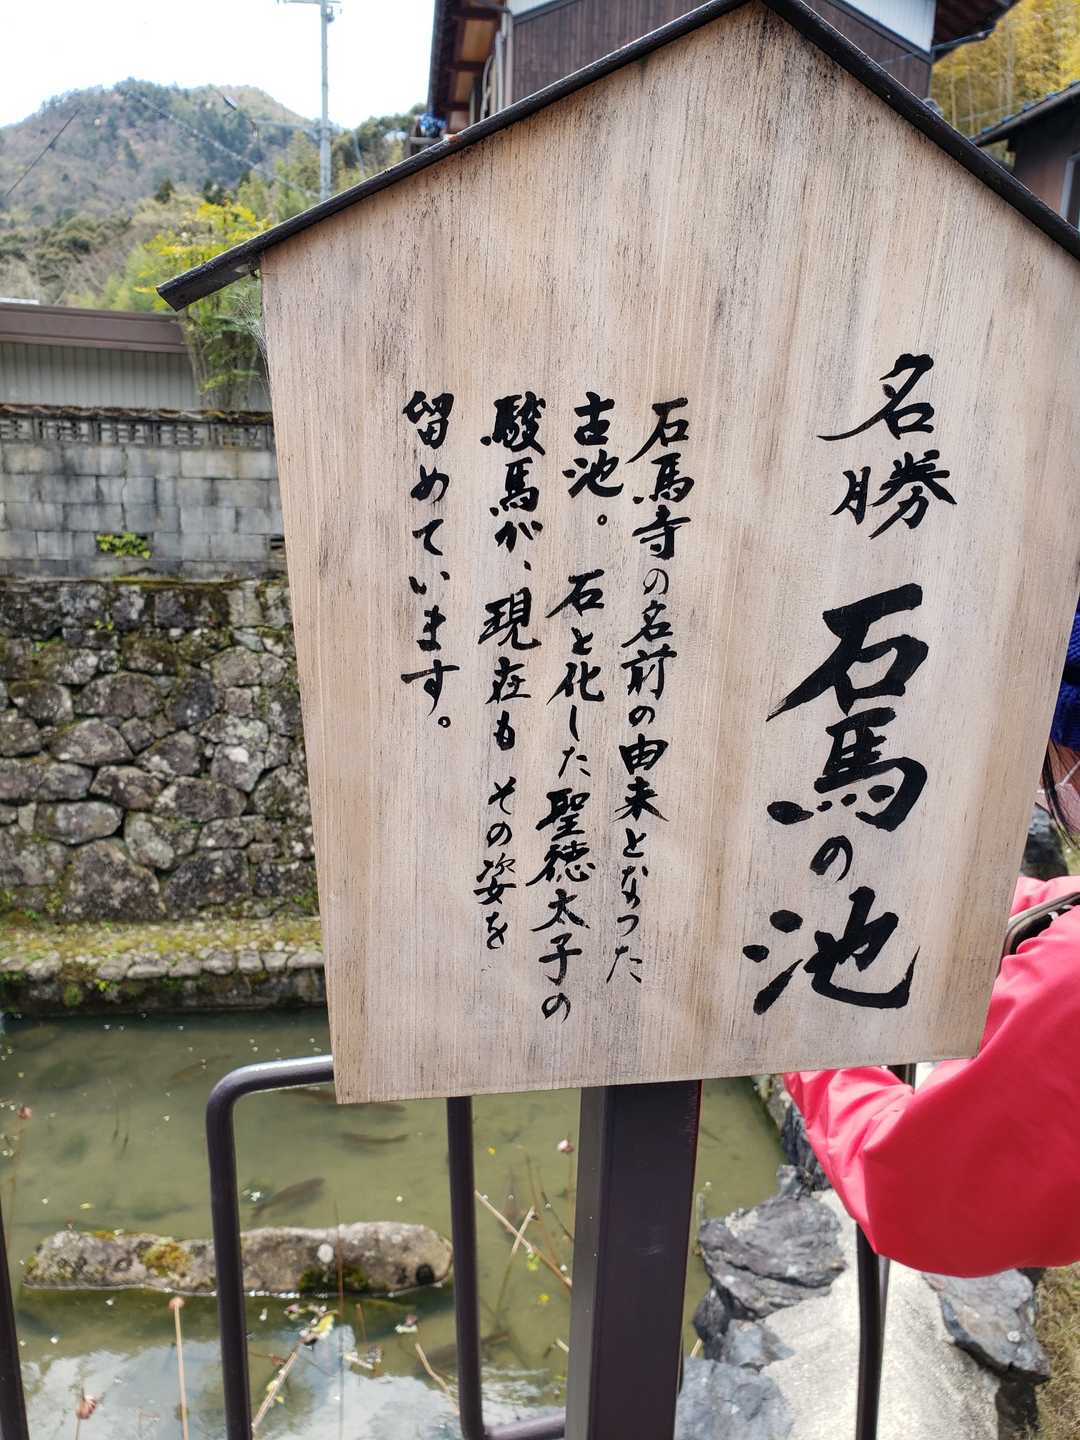 名勝 石馬の池
石馬寺の名前の由来となった
古池。石と化した聖徳太子の
駿馬が、現在もその姿を
留めています。